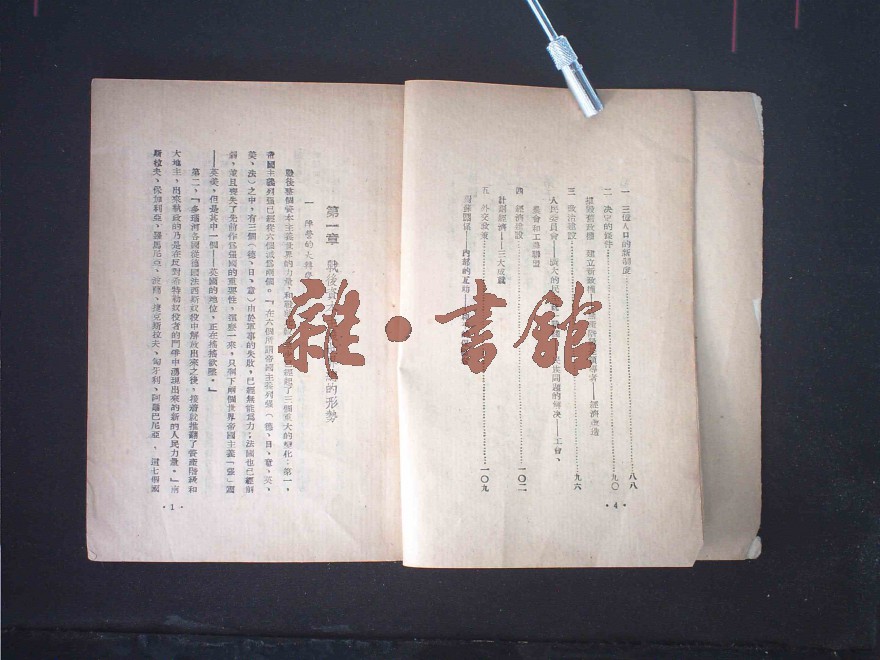 一 三億人口的新制度……八八
二 決定的條件……九〇
摧毀舊政權 建立新政權
領導者——經濟改造
三 政治建設……九六
人民委員會——廣大的民
族問題的解决——工會、
農會和工農聯盟
四 經濟建設……一〇二
計劃經濟——三大成就
五 外交政策……一〇九
· 4 ·
第一章 戰後資
的形勢
一 陣營的大
戰後整個資本主義世界的力量,和戰
已經起了三個重大的變化:第一,
帝國主義列強已經從六個減爲兩個。「在六個所謂帝國主義列強(德、日、意、英、
美、法)之中,有三個(德、日、意)由於軍事的失敗,已經無能爲力;法國也已經削
弱,並且喪失了先前作爲強國的重要性。這麼一來,只剩下兩個世界帝國主義「強」國
——英美,但是其中一個——英國的地位,正在搖搖欲墜。」
第二,「多瑙河各國從德國法西斯奴役中解放出來之後,接着就推翻了資產階級和
大地主,出來執政的乃是在反對希特勒奴役者的鬥爭中湧現出來的新的人民力量。」南
斯拉夫、保加利亞、羅馬尼亞、波蘭、捷克斯拉夫、匈牙利、阿爾巴尼亞,這七個國
· 1 ·
雜·書舘